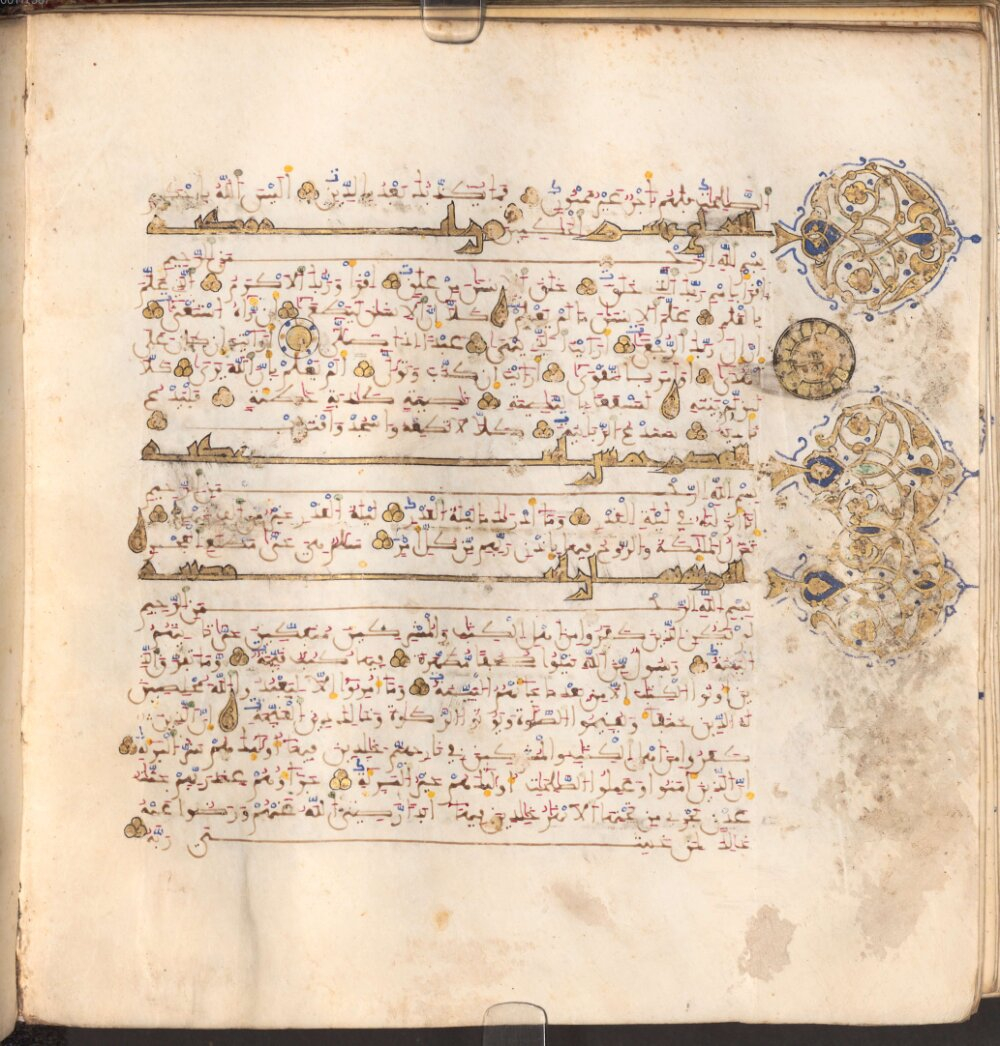 الصالحات فلهم أجر غير ممنون فما يكذبك بعد بالدين أليس الله بأحكم
الحاكمين
بسم الله الرحمن الرحيم
اقرأ باسم ربك الذي خلق خلق الإنسان من علق اقرأ وربك الأكرم الذي علم
بالقلم علم الإنسان ما لم يعلم كلا إن الإنسان ليطغى أن رآه استغنى
إن إلى ربك الرجعى أرأيت الذي ينهى عبدا إذا صلى أرأيت إن كان على
الهدى أو أمر بالتقوى أرأيت إن كذب وتولى ألم يعلم بأن الله يرى كلا
لئن لم ينته لنسفعا بالناصية ناصية كاذبة خاطئة فليدع
ناديه سندع الزبانية كلا لا تطعه واسجد واقترب
القدر خمس مكية
بسم الله الرحمن الرحيم
إنا أنزلناه في ليلة القدر وما أدراك ما ليلة القدر ليلة القدر خير من ألف شهر
تنزل الملئكة والروح فيها بإذن ربهم من كل أمر سلام هي حتى مطلع الفجر
بسم الله الرحمن الرحيم
لم يكن الذين كفروا من أهل الكتاب والمشركين منفكين حتى تأتيهم
البينة رسول من الله يتلوا صحفا مطهرة فيها كتب قيمة وما تفرق الذ
ين أوتوا الكتاب إلا من بعد ما جاءتهم البينة وما أمروا إلا ليعبدوا الله مخلصين
له الدين حنفاء ويقيموا الصلوة ويؤتوا الزكوة وذلك دين القيمة إن الذين
كفروا من أهل الكتاب والمشركين في نار جهنم خالدين فيها أولئك هم شر البرية
إن الذين آمنوا وعملوا الصالحات أولئك هم خير البرية جزاؤهم عند ربهم جنت
عدن تجري من تحتها الأنهار خالدين فيها أبدا رضي الله عنهم ورضوا عنه
ذلك لمن خشي ربه